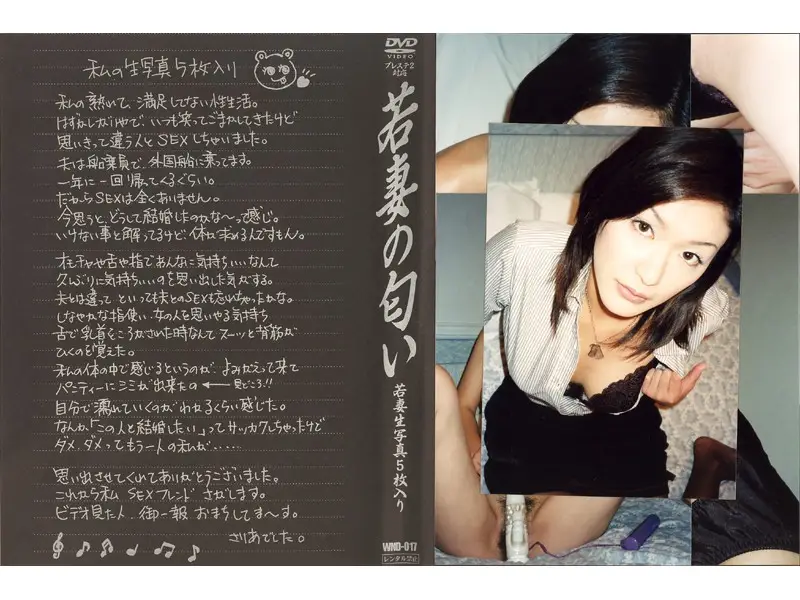 私の生写真5枚入り
私の熟れて、満足してない性生活。
はずかしがりやで、いつも笑ってごまかしてきたけど
思いきって違う人とSEXしちゃいました。
夫は船乗員で、外国船に乗ってます。
一年に一回帰ってくるぐらい。
だからSEXは全くありません。
今思うと、どうして結婚したのかな〜って感じ。
いけない事と解ってるけど体が求めるんですもん。
オモチャや舌や指であんなに気持ちいいなんて
久しぶりに気持ちいいのを思い出した気がする。
夫とは違って といっても夫とのSEXも忘れちゃったかな。
しなやかな指使い、女の人を思いやる気持ち
舌で乳首をころがされた時なんてスーッと背筋が
ひくのを覚えた。
私の体の中で感じるというのが、よみがえって来て
パンティーにシミが出来たの ← 見どころ!!
自分で濡れていくのがわかるくらい感じた。
なんか「この人と結婚したい」ってサッカクしちゃったけど
ダメ、ダメってもう一人の私が・・・・
思い出させてくれてありがとうございました。
これから私 SEXフレンド さがします。
ビデオ見た人、御一報 おまちしてま〜す。
さりあでした。
DVD
VIDEO
プレステ2
対応
若妻の匂い
若妻生写真5枚入り
WND-017
レンタル禁止